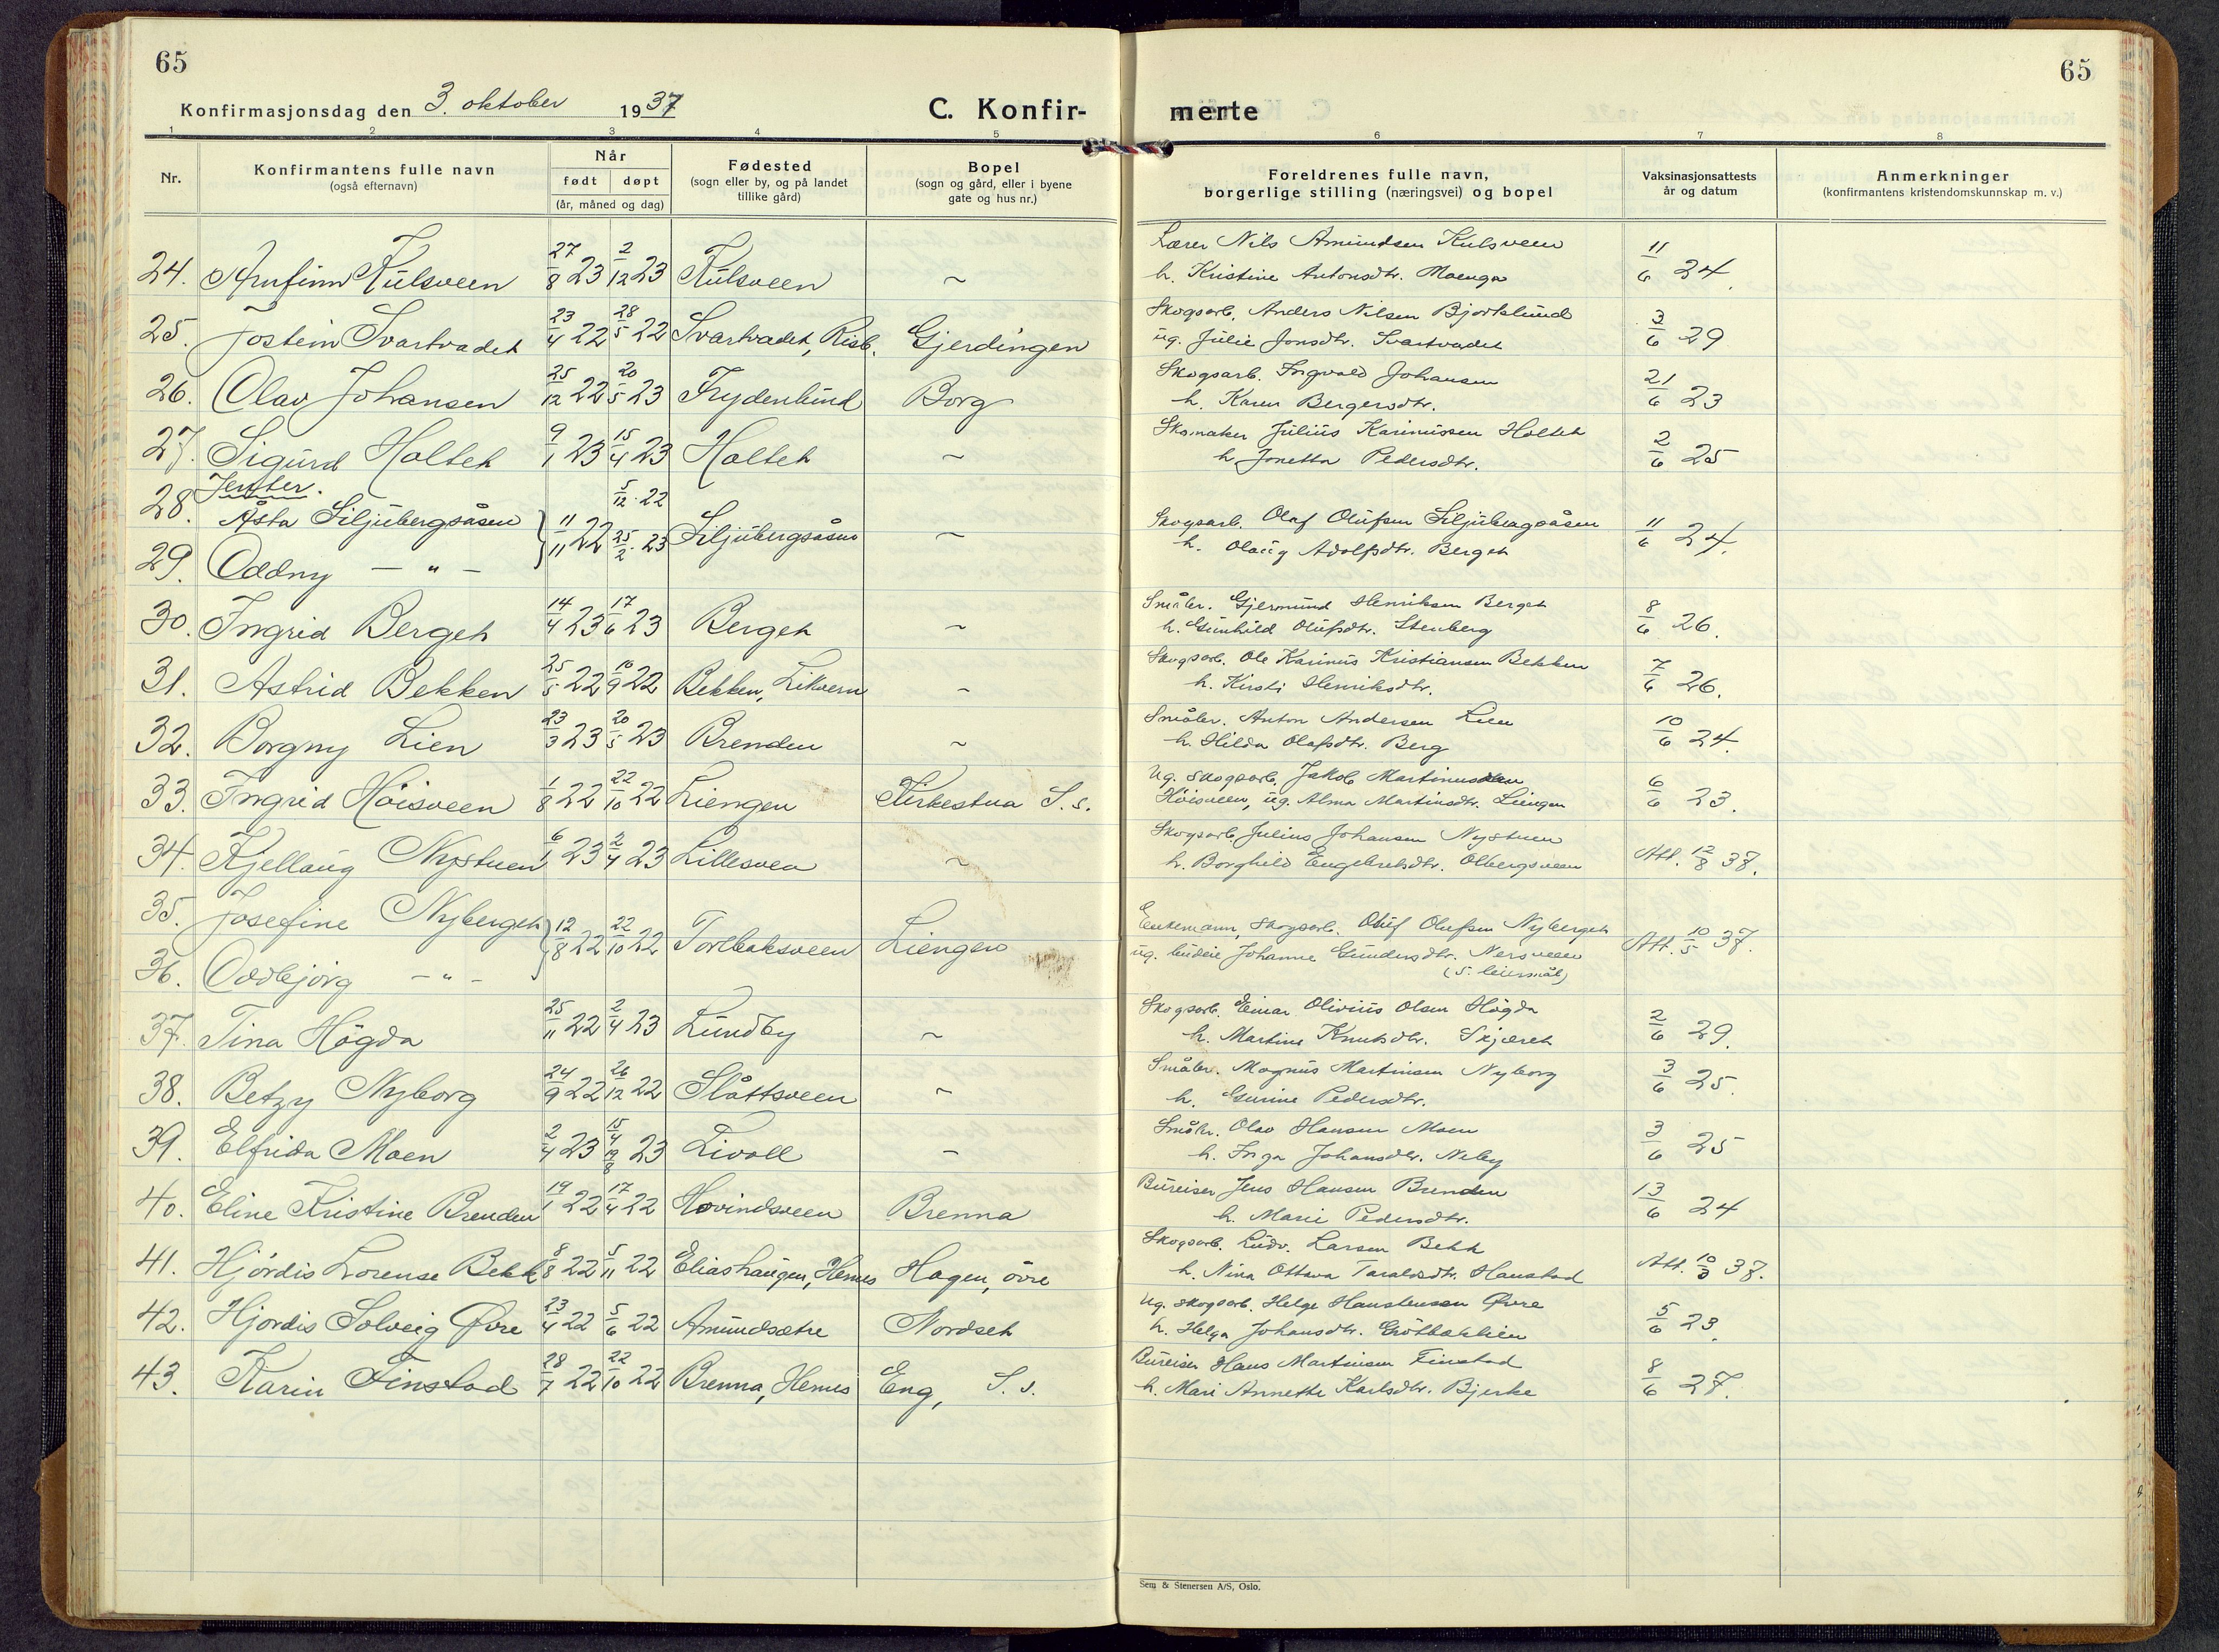 65
65
Konfirmasjonsdag den 3. oktober 1937
C. Konfir-
merte
1 2 3 4 5 6 7 8
Nr.
Konfirmantens fulle navn
(også efternavn)
Når
født døpt
(år, måned og dag)
Fødested
(sogn eller by, og på landet
tillike gård)
Bopel
(sogn og gård, eller i byene
gate og hus nr.)
Foreldrenes fulle navn,
borgerlige stilling (næringsvei) og bopel
Vaksinasjonsattests
år og datum
Anmerkninger
(konfirmantens kristendomskunnskap m. v.)
24. Arnfinn Kulsveen 27/8 23 2/12 23 Kulsveen ~ Lærer Nils Amundsen Kulsveen 11/6 24.
h. Kristine Antonsdtr. Moenga
25. Jostein Svartvadet 23/4 22 28/5 22 Svartvadet, Risb. Gjerdingen Skogsarb. Anders Nilsen Bjorklund 3/6 29
ug. Julie Jonsdtr. Svartvadet
26. Olav Johansen 25/12 22 20/5 23 Frydenlund Borg Skogsarb. Ingvald Johansen 21/6 23
h. Karen Bergersdtr.
27. Sigurd Holteh 9/1 23 15/4 23 Holteh ~ Skomaker Julius Karinussen Holteh 2/6 25
h Jonetta Pedersdtr.
Jenter.
28. Åsta Siljubergsåsen } 11/11 22 5/12. 22 Siljubergsåsen ~ Skogsarb. Olaf Olufsen Siljubergsåsen 11/6 24.
29. Oddny — " — 25/2. 23 h. Olaug Adolfsdtr. Berget
30. Ingrid Berget 14/4 23 17/6 23 Berget ~ Småbr. Gjermund Henriksen Berget 8/6 26.
h. Gunhild Olufsdtr. Stenberg
31. Astrid Bekken 25/5 22 10/9 22 Bekken, Likvern ~ Skogsarb. Ole Karinus Kristiansen Bekken 7/6 26.
h. Kirsti Henriksdtr.
32. Borgny Lien 23/3 23 20/5 23 Brenden ~ Småbr. Anton Andersen Lien 10/6 24.
h. Hilda Olafsdtr. Berg
33. Ingrid Höisveen 1/8 22 22/10 22 Liengen Kirkestua S.s. Ug. skogsarb. Jakob Martinussen 6/6 23.
Höisveen, ug. Alma Martinsdtr. Liengen
34. Kjellaug Nystuen 6/1 23 2/4 23 Lillesvea ~ Skogsarb. Julius Johansen Nystuen Att. 12/8 37.
h. Borghild Engebretsdtr. Olbergsveen
35. Josefine Nyberget } 12/8 22 22/10 22 Torlbaksveen Liengen Enkemann, skogsarb. Oluf Olufsen Nyberget Att. 10/5 37.
36. Oddbjörg — " — ug. budeie Johanne Gundersdtr. Nersveen
(5. leiersmål)
37. Tina Högda 25/11 22 2/4 23 Lundby ~ Skogsarb. Einar Olivius Olsen Högda 2/6 29.
h. Martine Knutsdtr. Skjæret
38. Betzy Nyborg 24/9 22 26/12 22 Slåttsveen ~ Småbr. Magnus Martinsen Nyborg 3/6 25.
h. Gurine Pedersdtr.
39. Elfrida Moen 2/4 23 15/4 19/8 23 Livoll ~ Småbr. Olav Hansen Moen 3/6 25
h. Inga Johansdtr. Neby
40. Eline Kristine Brenden 19/1 22 17/4 22 Hovindsveen Brenna Bureiser Jens Hansen Brenden 13/6 24
h. Marie Pedersdtr.
41. Hjördis Lorense Bekk 8/8 22 5/11 22 Eliashaugen, Hernes Hagen, övre Skogsarb. Ludv. Larsen Bekk Att. 10/3 37.
h. Nina Ottava Taraldsdtr. Hanstad
42. Hjördis Solveig Övre 23/4 22 5/6 22 Amundsætre Nordseth Ug. skogsarb. Helge Haustensen Övre 5/6 23.
h. Helga Johansdtr. Grötbæklien
43. Karin Finstad 28/7 22 22/10 22 Brenna, Hernes Eng, S.s. Bureiser Hans Martinsen Finstad 8/6 27.
h. Mari Annette Karlsdtr. Bjerke
Sem & Stenersen A/S, Oslo.